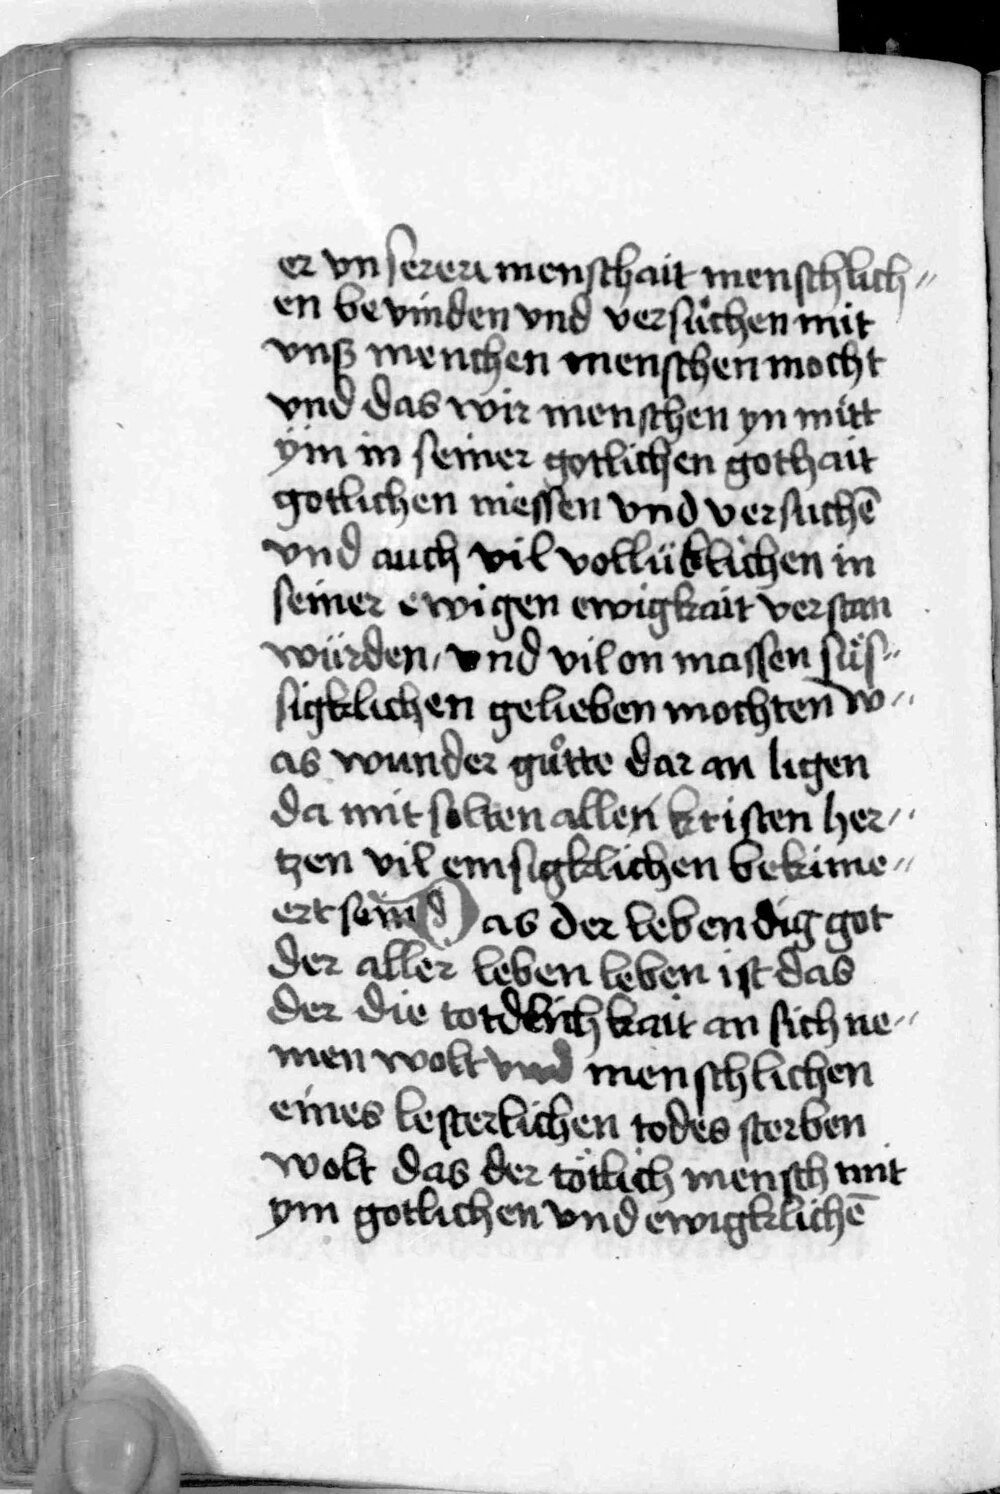 er vnserern menschait menschlich〃
en bevinden vnd versuͦchen mit
vnß menchen menschen mocht
vnd das wir menschen yn mitt
ÿm in seiner gotlichen gothait
gotlichen niessen vnd versuchē
vnd auch vil volluͤklichen in
seiner ewigen ewigkait verstan
wuͤrden, vnd vil on massen suͤs〃
sigklichen gelieben mochten w〃
as wunder guͦtte dar an ligen
da mit solten allen kristen her〃
tzen vil emsigklichen bekime〃
ert sein Das der lebendig got
der aller leben leben ist das
der die totdlich kait an sich ne〃
men wolt vnd menschlichen
eines lesterlichen todes sterben
wolt das der toͤtlich mensch mit
ym gotlichen vnd ewigklichē